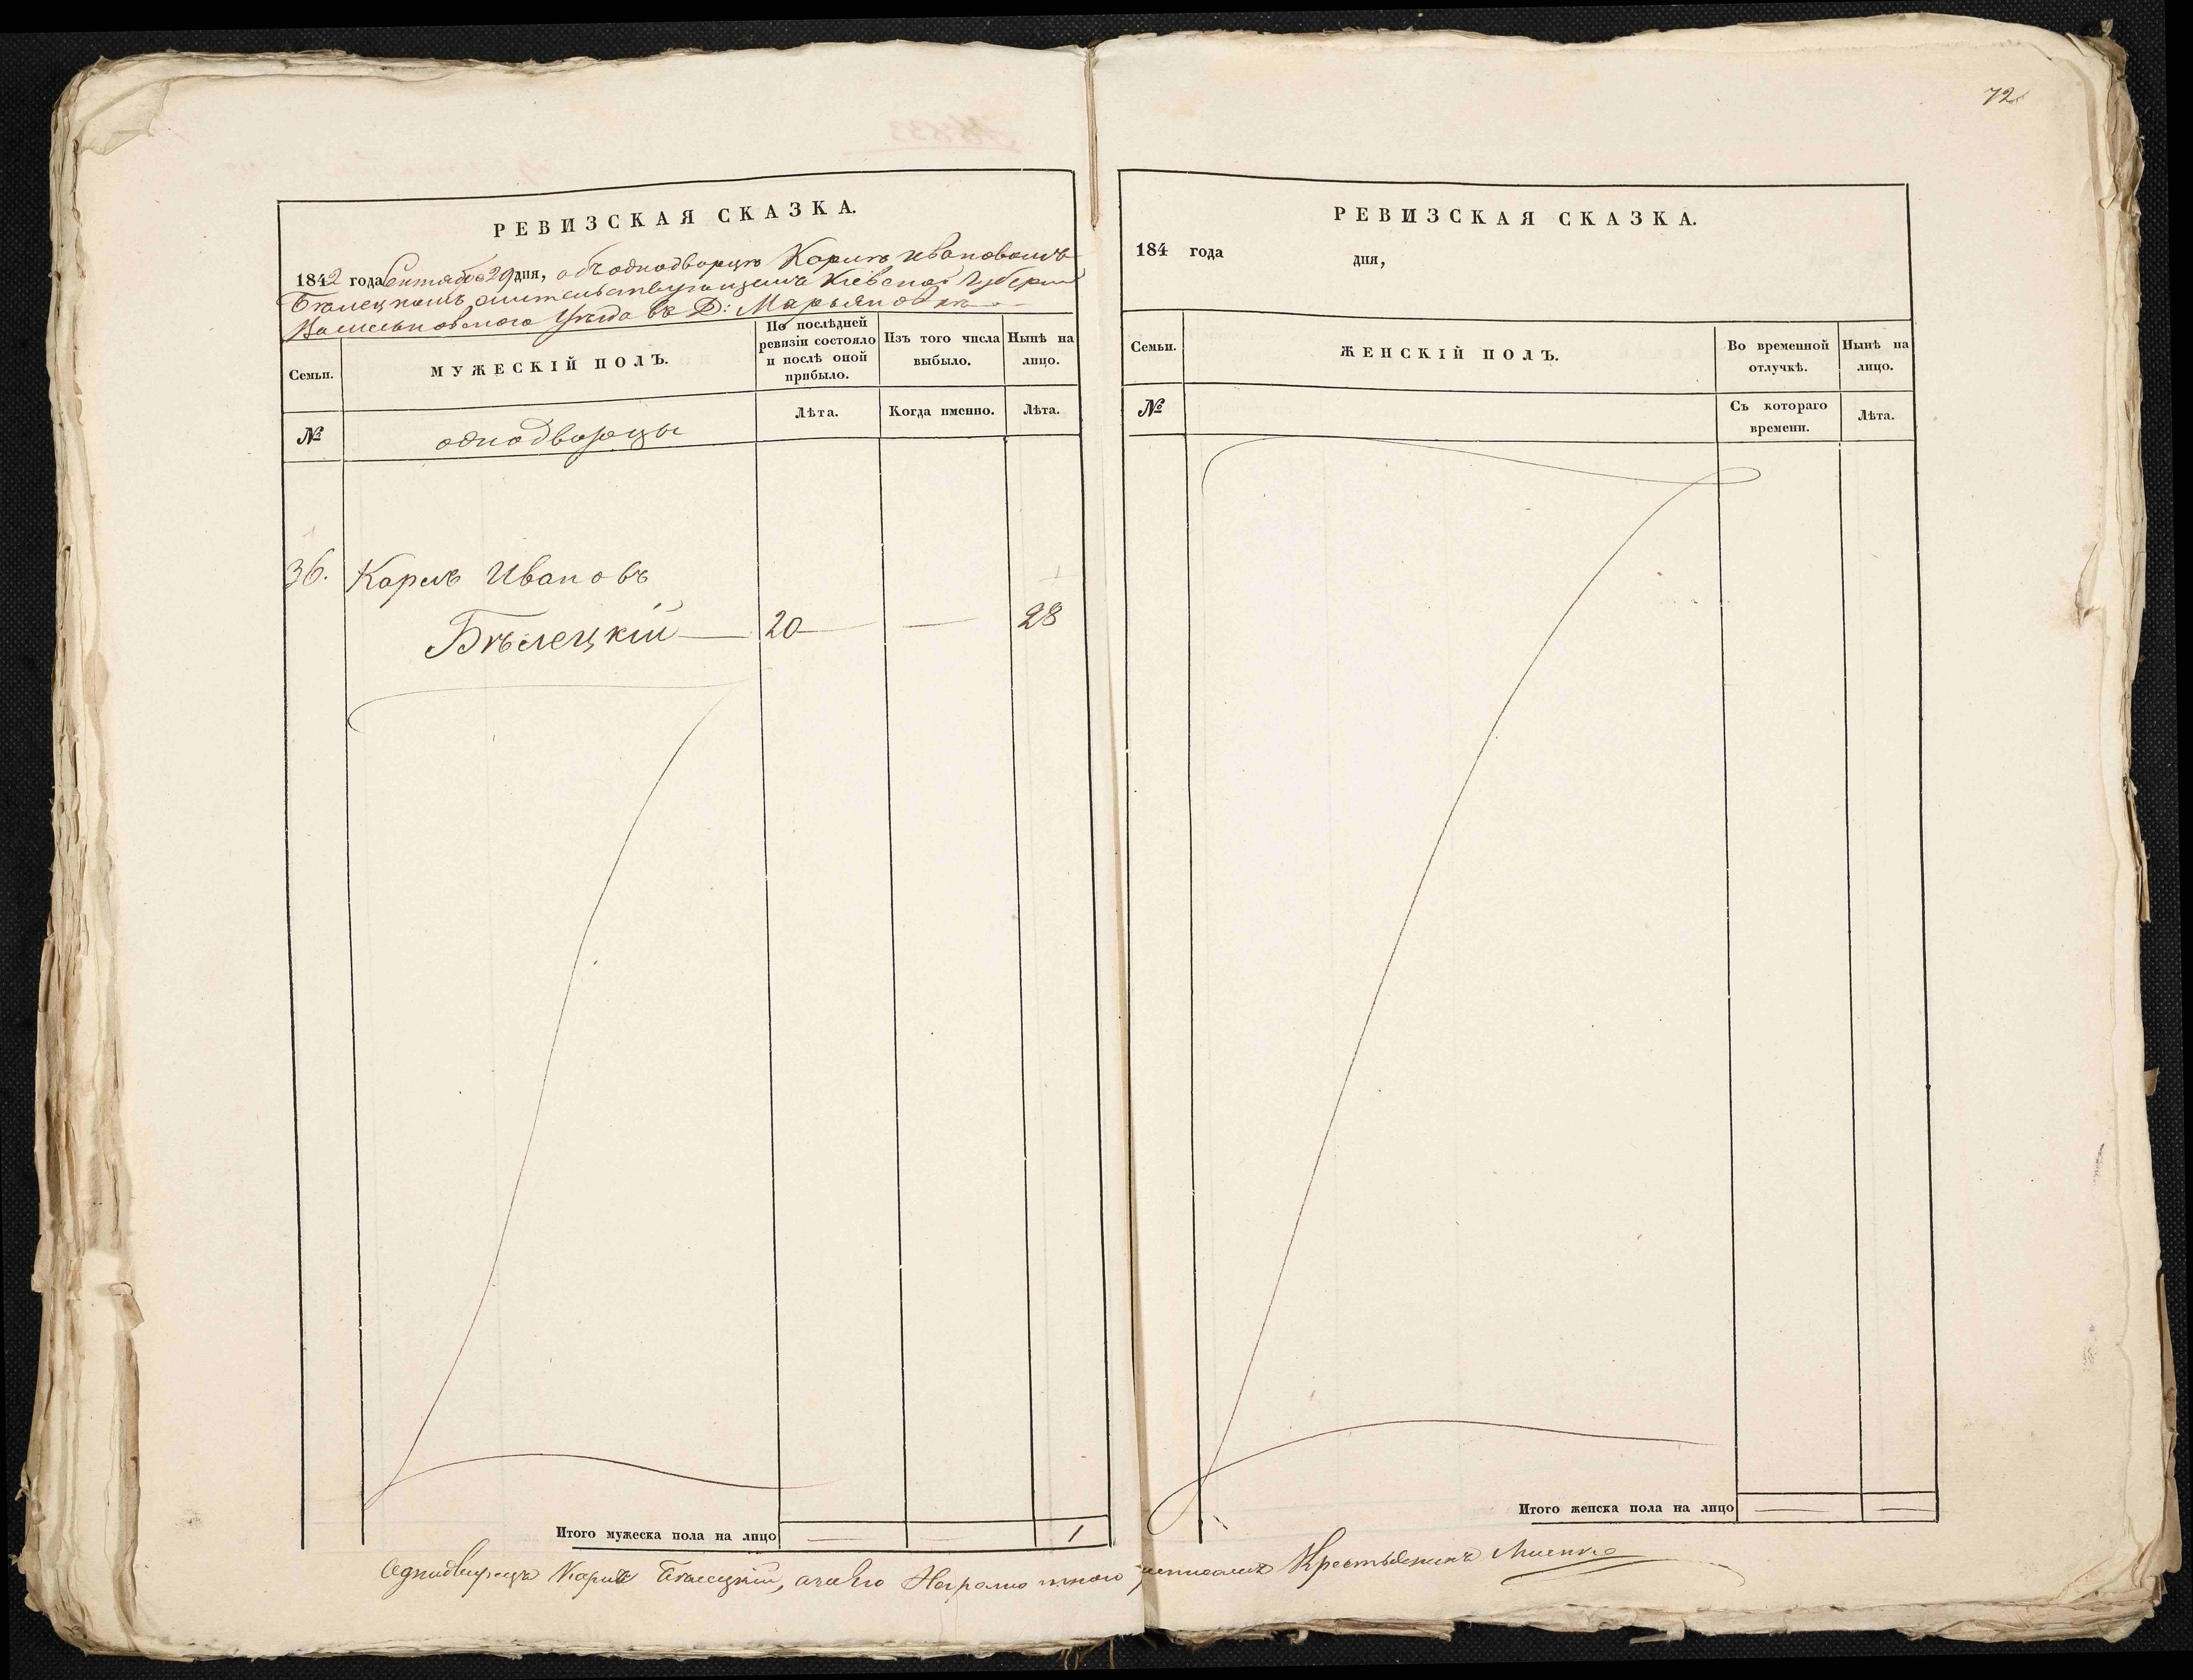 72
РЕВИЗСКАЯ СКАЗКА.
1842 года Сентября 29 дня, объ однодворцѣ Карлѣ Ивановомъ
Бѣлецкомъ жительствующемъ Кіевской Губерніи
Васильковскаго Уѣзда въ Д: Марьяновкѣ
Семьи.
МУЖЕСКІЙ ПОЛЪ.
По послѣдней ревизіи состояло и послѣ оной прибыло.
Изъ того числа выбыло.
Нынѣ на лицо.
№
однодворцы
Лѣта.
Когда именно.
Лѣта.
36. Карлъ Ивановъ
Бѣлецкій — 20 — — 28
Итого мужеска пола на лицо — — 1
РЕВИЗСКАЯ СКАЗКА.
184 года дня,
Семьи.
ЖЕНСКІЙ ПОЛЪ.
Во временной отлучкѣ.
Нынѣ на лицо.
№
Съ котораго времени.
Лѣта.
Итого женска пола на лицо — —
Однодворецъ Карлъ Бѣлецкій, а за его Неграмотного росписался Крестьянинъ